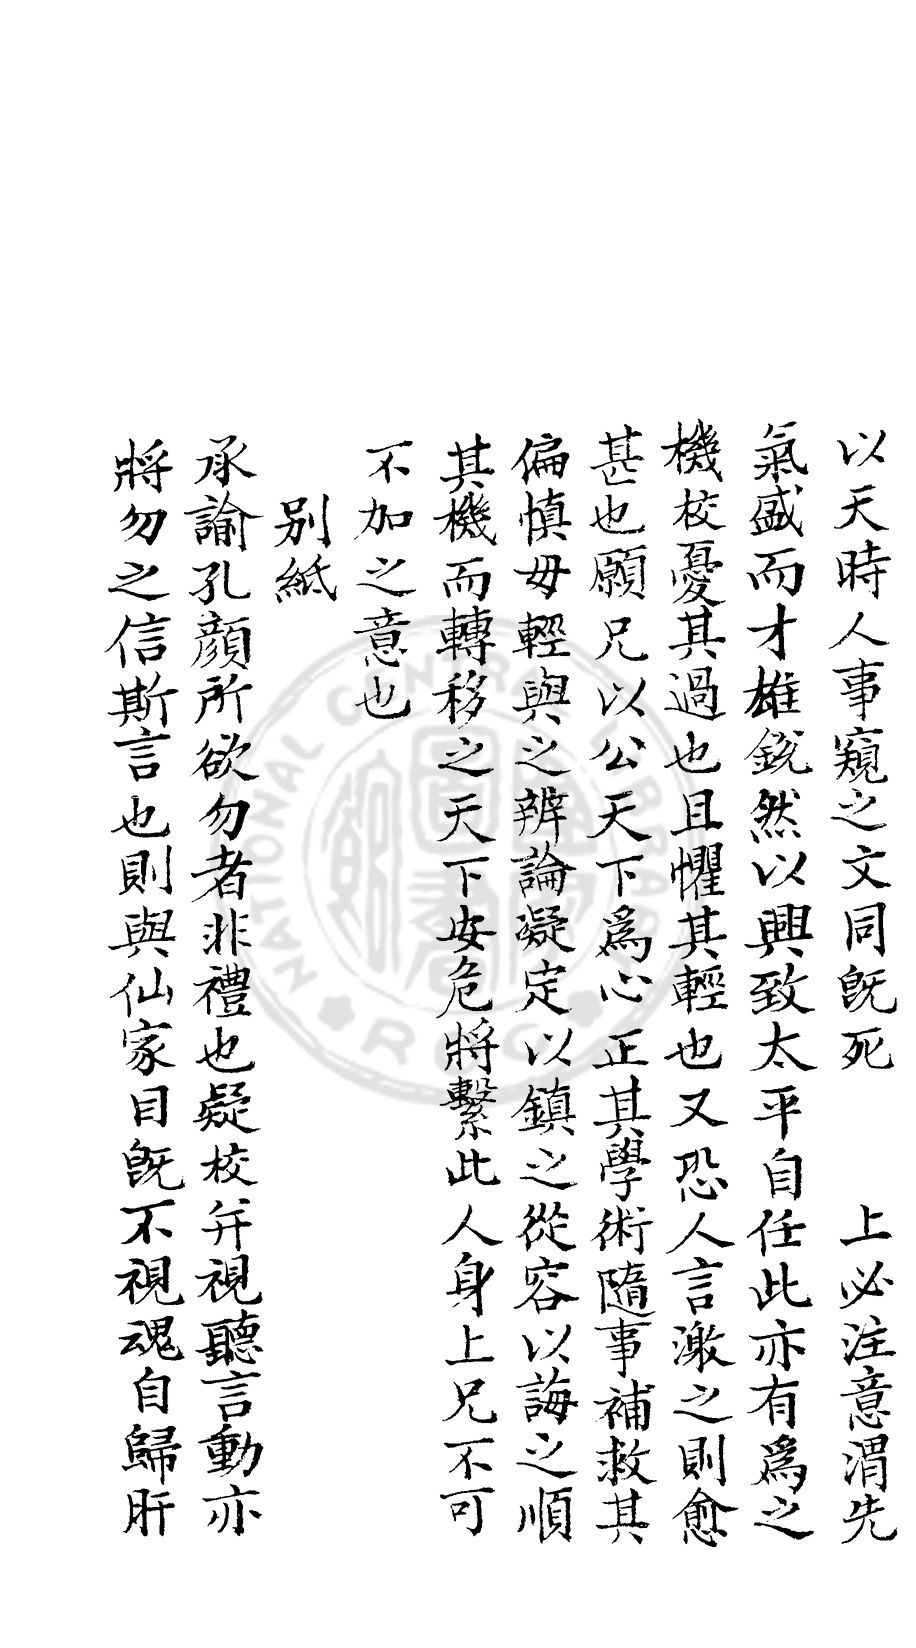 以天時人事窺之文同旣死　　上必注意渭先
氣盛而才雄銳然以興致太平自任此亦有爲之
機校憂其過也且懼其輕也又恐人言激之則愈
甚也願兄以公天下爲心正其學術隨事補救其
偏慎毋輕與之辨論凝定以鎮之從容以誨之順
其機而轉移之天下安危將繫此人身上兄不可
不加之意也
別紙
承諭孔顏所欲勿者非禮也疑校并視聽言動亦
將勿之信斯言也則與仙家目旣不視魂自歸肝
NATIONAL CENTRAL LIBRARY R.O.C.